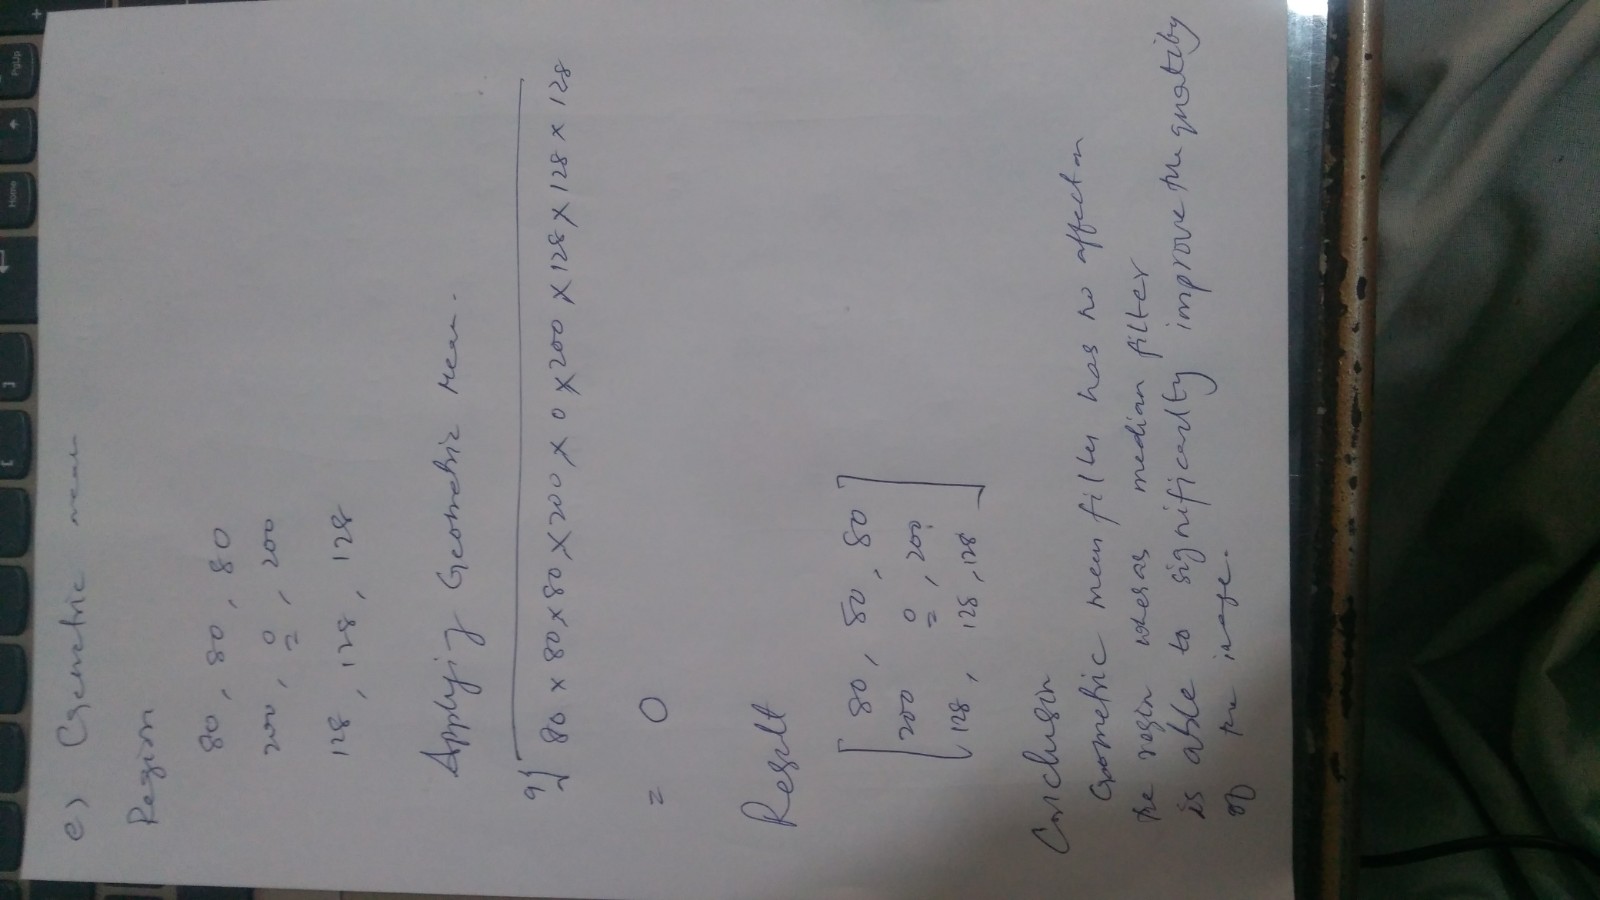 e) Geometric mean
Region
80, 80, 80
200, 0, 200
128, 128, 128
Applying Geometric Mean.
9√80 x 80 x 80 x 200 x 0 x 200 x 128 x 128 x 128
= 0
Result
80, 80, 80
200 0, 200
128, 128, 128
Conclusion
Geometric mean filter has no affect on
the region whereas median filter
is able to significantly improve the quality
of the image.
PgUp
Home